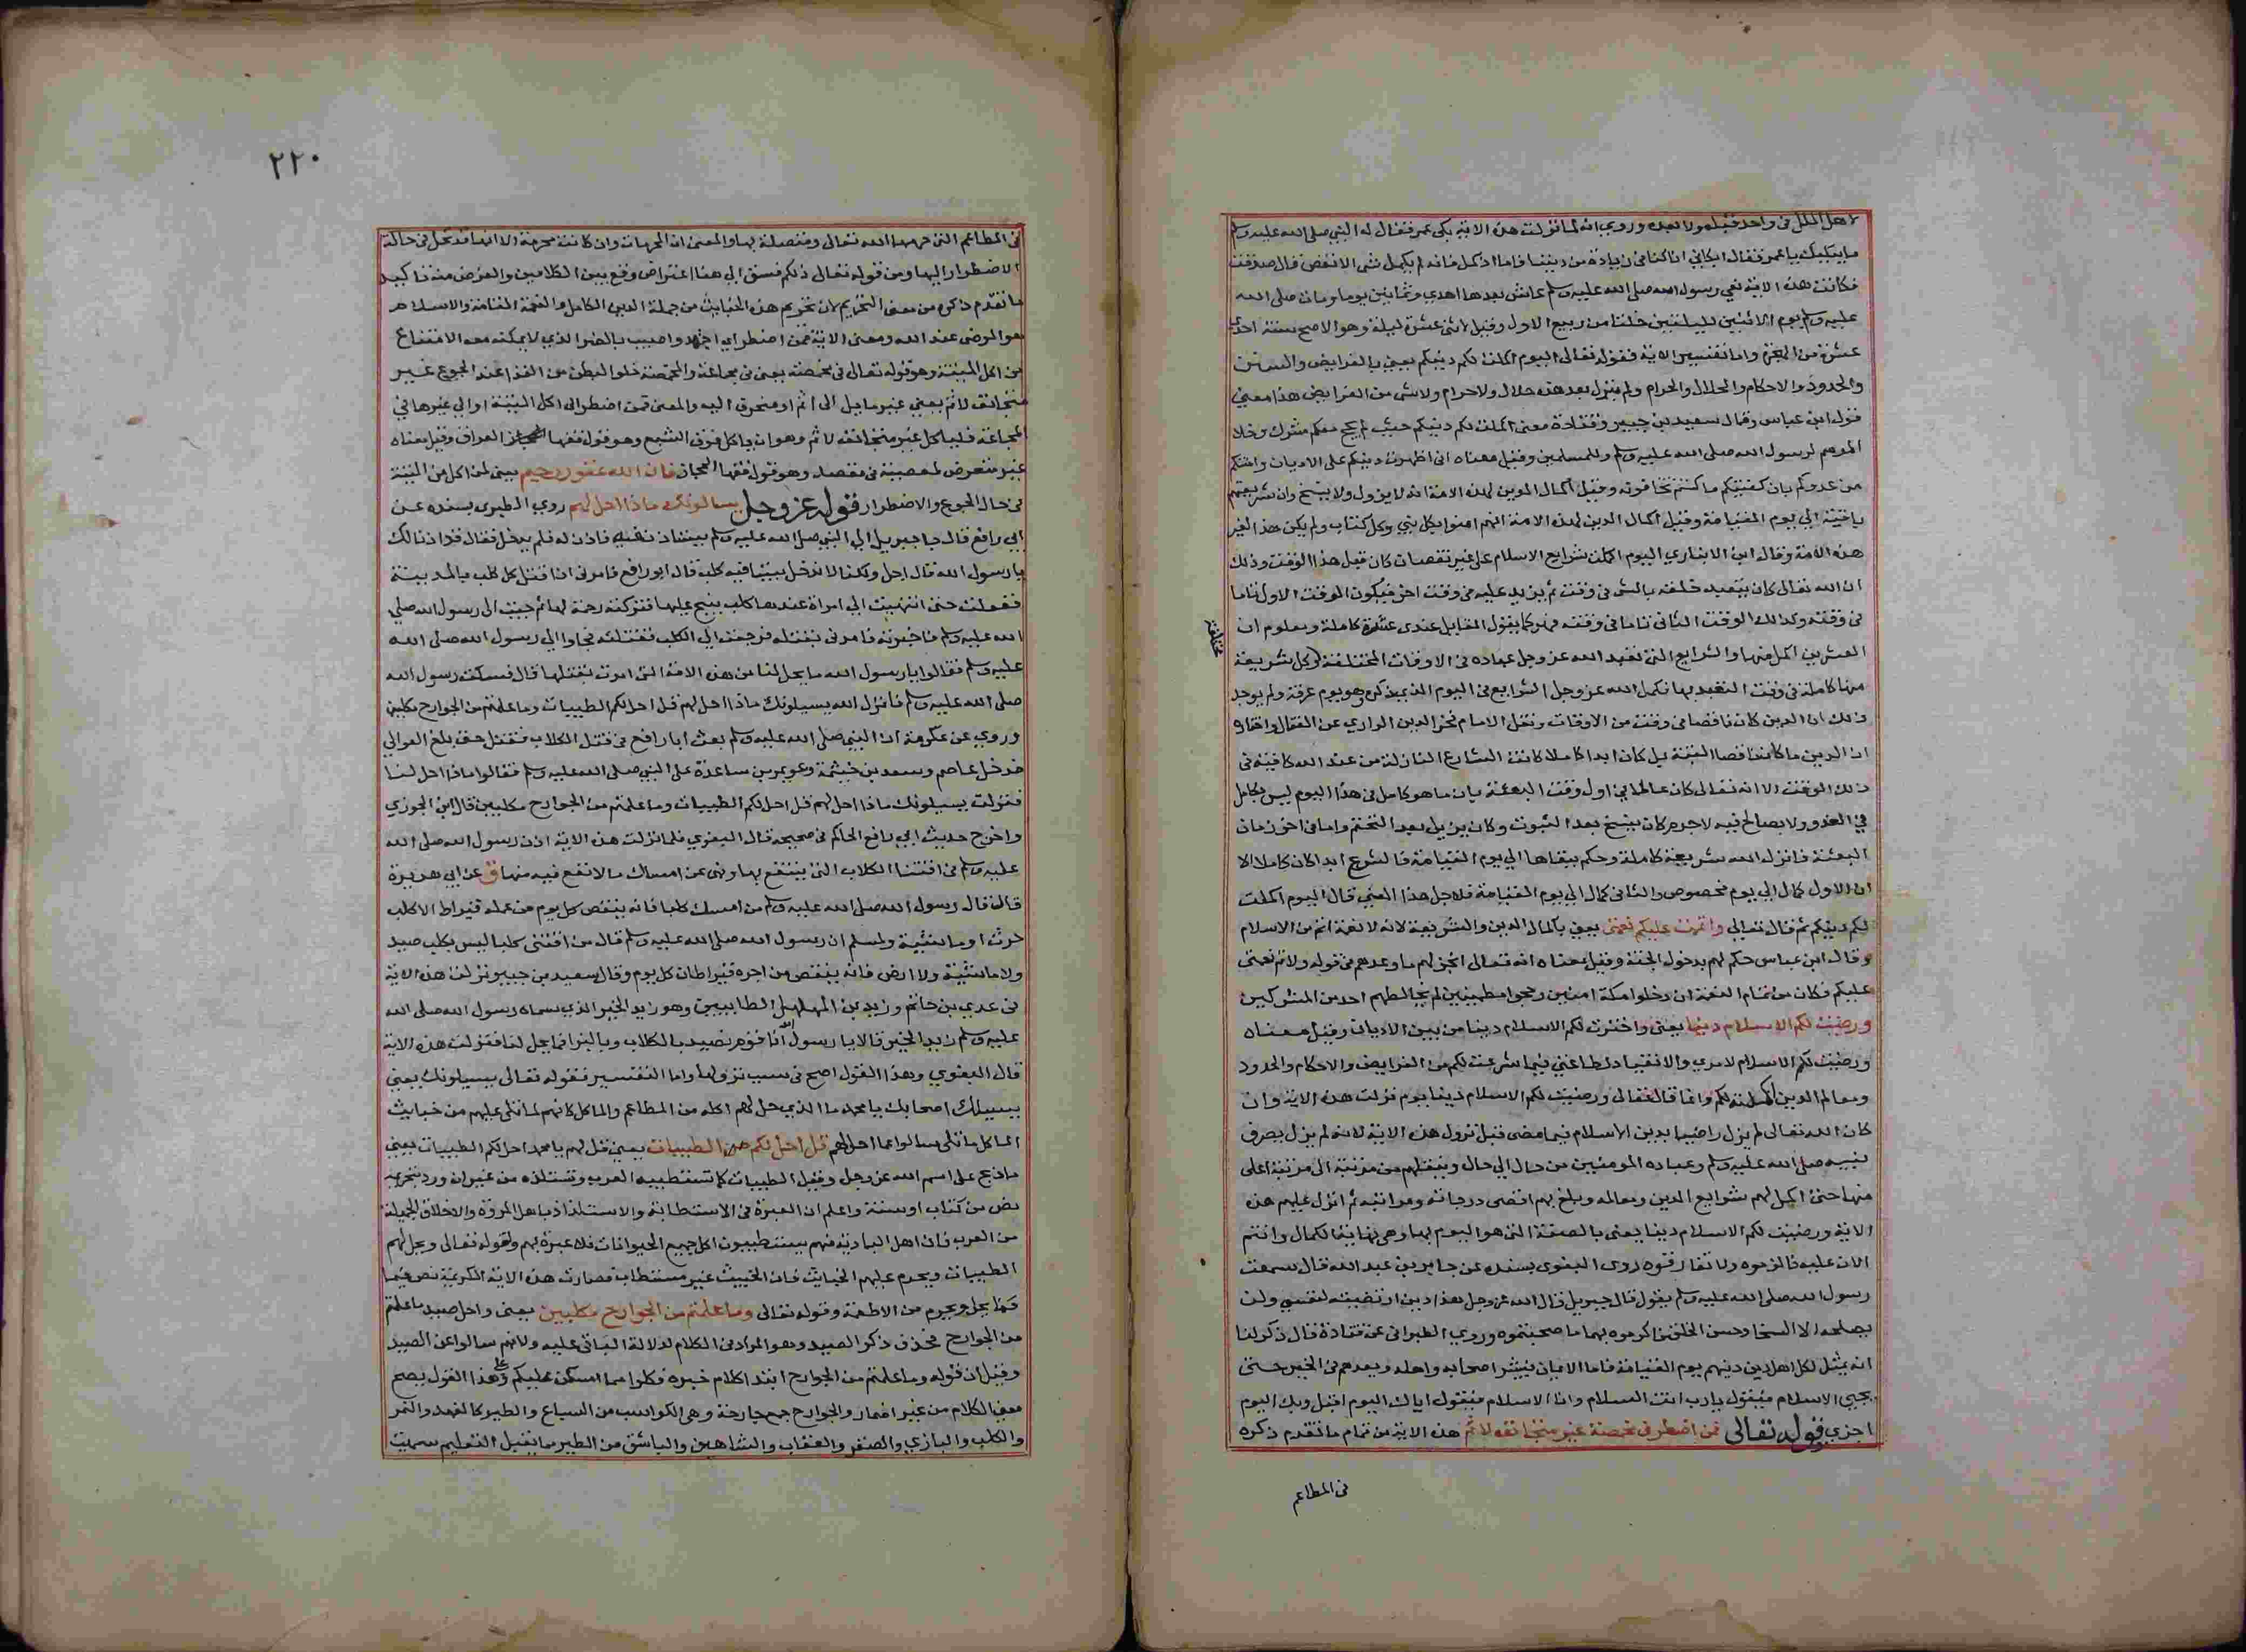 لاهل الملل في واحد قبله ولا بعده وروي انه لما نزلت هذه الاية بكى عمر فقال له النبي صلى الله عليه وسلم
ما يبكيك يا عمر فقال ابكاني انا كنا في زيادة من ديننا فاما اذ كمل فانه لم يكمل شي الا نقص قال صدقت
فكانت هذه الاية نعي رسول الله صلى الله عليه وسلم عاش بعدها احدي وثمانين يوما ومات صلى الله
عليه وسلم يوم الاثنين لليلتين خلتا من ربيع الاول وقيل لاثنى عشرة ليلة وهو الاصح سنة احدي
عشرة من الهجرة واما تفسير الاية فقوله تعالى اليوم اكملت لكم دينكم يعني بالفرايض والسنن
والحدود والاحكام والحلال والحرام ولم ينزل بعد هذه حلال ولا حرام ولا شي من الفرايض هذا معني
قول ابن عباس وقال سعيد بن جبير وقتادة معنى اكملت لكم دينكم حيث لم يحج معكم مشرك وخلا
الموسم لرسول الله صلى الله عليه وسلم وللمسلمين وقيل معناه اني اظهرت دينكم على الاديان وامنتكم
من عدوكم بان كفيتكم ما كنتم تخافونه وقيل اكمال الدين لهذه الامة انه لا يزول ولا ينسخ وان شريعتهم
باقية الي يوم القيامة وقيل اكمال الدين لهذه الامة انهم امنوا بكل نبي وكل كتاب ولم يكن هذا لغير
هذه الامة وقال ابن الانباري اليوم اكملت شرايع الاسلام على غير نقصان كان قبل هذا الوقت وذلك
ان الله تعالى كان يتعبد خلقه بالشي في وقت ثم يزيد عليه في وقت اخر فيكون الوقت الاول تاما
في وقته وكذلك الوقت الثاني تاما في وقته فهو كما يقول القايل عندى عشرة كاملة ومعلوم ان
العشرين اكمل منها والشرايع التي تعبد الله عز وجل عباده في الاوقات المختلفة وكل شريعة
مختلفة
منها كاملة في وقت التعبد بها فكمل الله عز وجل الشرايع في اليوم الذي ذكره وهو يوم عرفة ولم يوجد
ذلك ان الدين كان ناقصا في وقت من الاوقات ونقل الامام فخر الدين الرازي عن القفال واختاره
ان الدين ما كان ناقصا البتة بل كان ابدا كاملا كانت الشارع النازلة من عند الله كافية في
ذلك الوقت الا انه تعالى كان عالما في اول وقت البعثة بان ما هو كامل في هذا اليوم ليس بكامل
في الغد ولا بصالح فيه لا جرم كان ينسخ بعد الثبوت وكان يزيل بعد التحتم واما في اخر زمان
البعثة فانزل الله شريعة كاملة وحكم ببقاها الي يوم القيامة فالشرع ابدا كان كاملا الا
ان الاول كمال الي يوم مخصوص والثاني كمال الي يوم القيامة فلاجل هذا المعني قال اليوم اكملت
لكم دينكم ثم قال تعالى واتممت عليكم نعمتي يعني باكمال الدين والشريعة لانه لا نعمة اتم من الاسلام
وقال ابن عباس حكم لهم بدخول الجنة وقيل معناه انه تعالى انجز لهم ما وعدهم في قوله ولاتم نعمتي
عليكم فكان من تمام النعمة ان دخلوا مكة امنين وحجوا مطمينين لم يخالطهم احد من المشركين
ورضيت لكم الاسلام دينا يعني واخترت لكم الاسلام دينا من بين الاديان وقيل معناه
ورضيت لكم الاسلام لامري والانقياد لطاعتي فيما شرعت لكم من الفرايض والاحكام والحدود
ومعالم الدين اكملته لكم وانما قال تعالى ورضيت لكم الاسلام دينا يوم نزلت هذه الاية وان
كان الله تعالى لم يزل راضيا بدين الاسلام فيما مضى قبل نزول هذه الاية لانه لم يزل يصرف
نبيه صلى الله عليه وسلم وعباده المومنين من حال الي حال وينقلهم من مرتبة الى مرتبة اعلى
منها حتى اكمل لهم شرايع الدين ومعالمه وبلغ بهم اقصى درجاته ومراتبه ثم انزل عليهم هذه
الاية ورضيت لكم الاسلام دينا يعني بالصفة التي هو اليوم بها وهي نهاية الكمال وانتم
الان عليه فالزموه ولا تفارقوه روى البغوى بسنده عن جابر بن عبد الله قال سمعت
رسول الله صلى الله عليه وسلم يقول قال جبريل قال الله عز وجل هذا دين ارتضيته لنفسي ولن
يصلحه الا السخا وحسن الخلق فاكرموه بهما ما صحبتموه وروي الطبراني عن قتادة قال ذكر لنا
انه يمثل لكل اهل دين دينهم يوم القيامة فاما الايمان فيبشر اصحابه واهله ويعدهم في الخير حتى
يجيى الاسلام فيقول يا رب انت السلام وانا الاسلام فيقول اياك اليوم اقبل وبك اليوم
اجزي قوله تعالى فمن اضطر في مخمصة غير متجانف لاثم هذه الاية من تمام ما تقدم ذكره
في المطاعم
٢٢٠
في المطاعم التي حرمها الله تعالى ومتصلة بها والمعنى ان المحرمات وان كانت محرمة الا انها قد تحل في حالة
الاضطرار اليها ومن قوله تعالى ذلكم فسق الي هنا اعتراض وقع بين الكلامين والغرض منه تاكيد
ما تقدم ذكره من معنى التحريم لان تحريم هذه الخبايث من جملة الدين الكامل والنعمة التامة والاسلام
هو المرضى عند الله ومعنى الاية فمن اضطر اي اجهد واصيب بالضر الذي لا يمكنه معه الامتناع
من اكل الميتة وهو قوله تعالى في مخمصة يعني في مجاعة والمخمصة خلو البطن من الغذا عند الجوع غير
متجانف لاثم يعني غير مايل الى اثم او منحرف اليه والمعنى فمن اضطر الى اكل الميتة او الي غيرها في
المجاعة فلياكل غير متجانف لاثم وهو ان ياكل فوق الشبع وهو قول فقها العراق وقيل معناه
غير متعرض لمعصية في مقصده وهو قول فقها الحجاز فان الله غفور رحيم يعني لمن اكل من الميتة
في حال الجوع والاضطرار قوله عز وجل يسالونك ماذا احل لهم روي الطبري بسنده عن
ابي رافع قال جا جبريل الي النبي صلى الله عليه وسلم يستاذن عليه فاذن له فلم يدخل فقال قد اذنا لك
يا رسول الله قال اجل ولكنا لا ندخل بيتا فيه كلب قال ابو رافع فامرني ان اقتل كل كلب بالمدينة
ففعلت حتى انتهيت الي امراة عندها كلب ينبح عليها فتركته رحمة لها ثم جيت الى رسول الله صلى
الله عليه وسلم فاخبرته فامرني بقتله فرجعت الي الكلب فقتلته فجاوا الي رسول الله صلى الله
عليه وسلم فقالوا يا رسول الله ما يحل لنا من هذه الامة التي امرت بقتلها قال فسكت رسول الله
صلى الله عليه وسلم فانزل الله يسيلونك ماذا احل لهم قل احل لكم الطيبات وما علمتم من الجوارح مكلبين
وروي عن عكرمة ان النبي صلى الله عليه وسلم بعث ابا رافع في قتل الكلاب فقتل حتى بلغ العوالي
فدخل عاصم وسعد بن خيثمة وعويمر بن ساعدة على النبي صلى الله عليه وسلم فقالوا ماذا احل لنا
فنزلت يسيلونك ماذا احل لهم قل احل لكم الطيبات وما علمتم من الجوارح مكلبين قال ابن الجوزي
واخرج حديث ابي رافع الحاكم في صحيحه قال البغوي فلما نزلت هذه الاية اذن رسول الله صلى الله
عليه وسلم في اقتنا الكلاب التي ينتفع بها ونهى عن امساك ما لا نفع فيه منها ق عن ابي هريرة
قال قال رسول الله صلى الله عليه وسلم من امسك كلبا فانه ينقص كل يوم من عمله قيراط الا كلب
حرث او ماشية ولمسلم ان رسول الله صلى الله عليه وسلم قال من اقتنى كلبا ليس بكلب صيد
ولا ماشية ولا ارض فانه ينقص من اجره قيراطان كل يوم وقال سعيد بن جبير نزلت هذه الاية
في عدي بن حاتم وزيد بن المهلهل الطاييين وهو زيد الخير الذي سماه رسول الله صلى الله
عليه وسلم زيد الخير قالا يا رسول الله انا قوم نصيد بالكلاب وبالبزاة فما يحل لنا فنزلت هذه الاية
قال البغوي وهذا القول اصح في سبب نزولها واما التفسير فقوله تعالى يسيلونك يعني
يسيلك اصحابك يا محمد ما الذي حل لهم اكله من المطاعم والماكل كانهم لما تلى عليهم من خبايث
الماكل ما تلى سالوا عما احل لهم قل احل لكم الطيبات يعني قل لهم يا محمد احل لكم الطيبات يعني
ما ذبح على اسم الله عز وجل وقيل الطيبات كلما تستطيبه العرب وتستلذه من غير ان ورد بتحريمه
نص من كتاب او سنة واعلم ان العبرة في الاستطابة والاستلذاذ باهل المروة والاخلاق الجميلة
من العرب فان اهل البادية منهم يستطيبون اكل جميع الحيوانات فلا عبرة بهم ولقوله تعالى ويحل لهم
الطيبات ويحرم عليهم الخبايث فان الخبيث غير مستطاب فصارت هذه الاية الكريمة نص فيما
فيما يحل ويحرم من الاطعمة وقوله تعالى وما علمتم من الجوارح مكلبين يعني واحل صيد ما علمتم
من الجوارح فحذف ذكر الصيد وهو المراد في الكلام لدلالة الباقي عليه ولانهم سالوا عن الصيد
وقيل ان قوله وما علمتم من الجوارح ابتدا كلام خبره فكلوا مما امسكن عليكم وعلى هذا القول يصح
معنى الكلام من غير اضمار والجوارح جمع جارحة وهي الكواسب من السباع والطير كالفهد والنمر
والكلب والبازي والصقر والعقاب والشاهين والباشق من الطير مما يقبل التعليم سميت